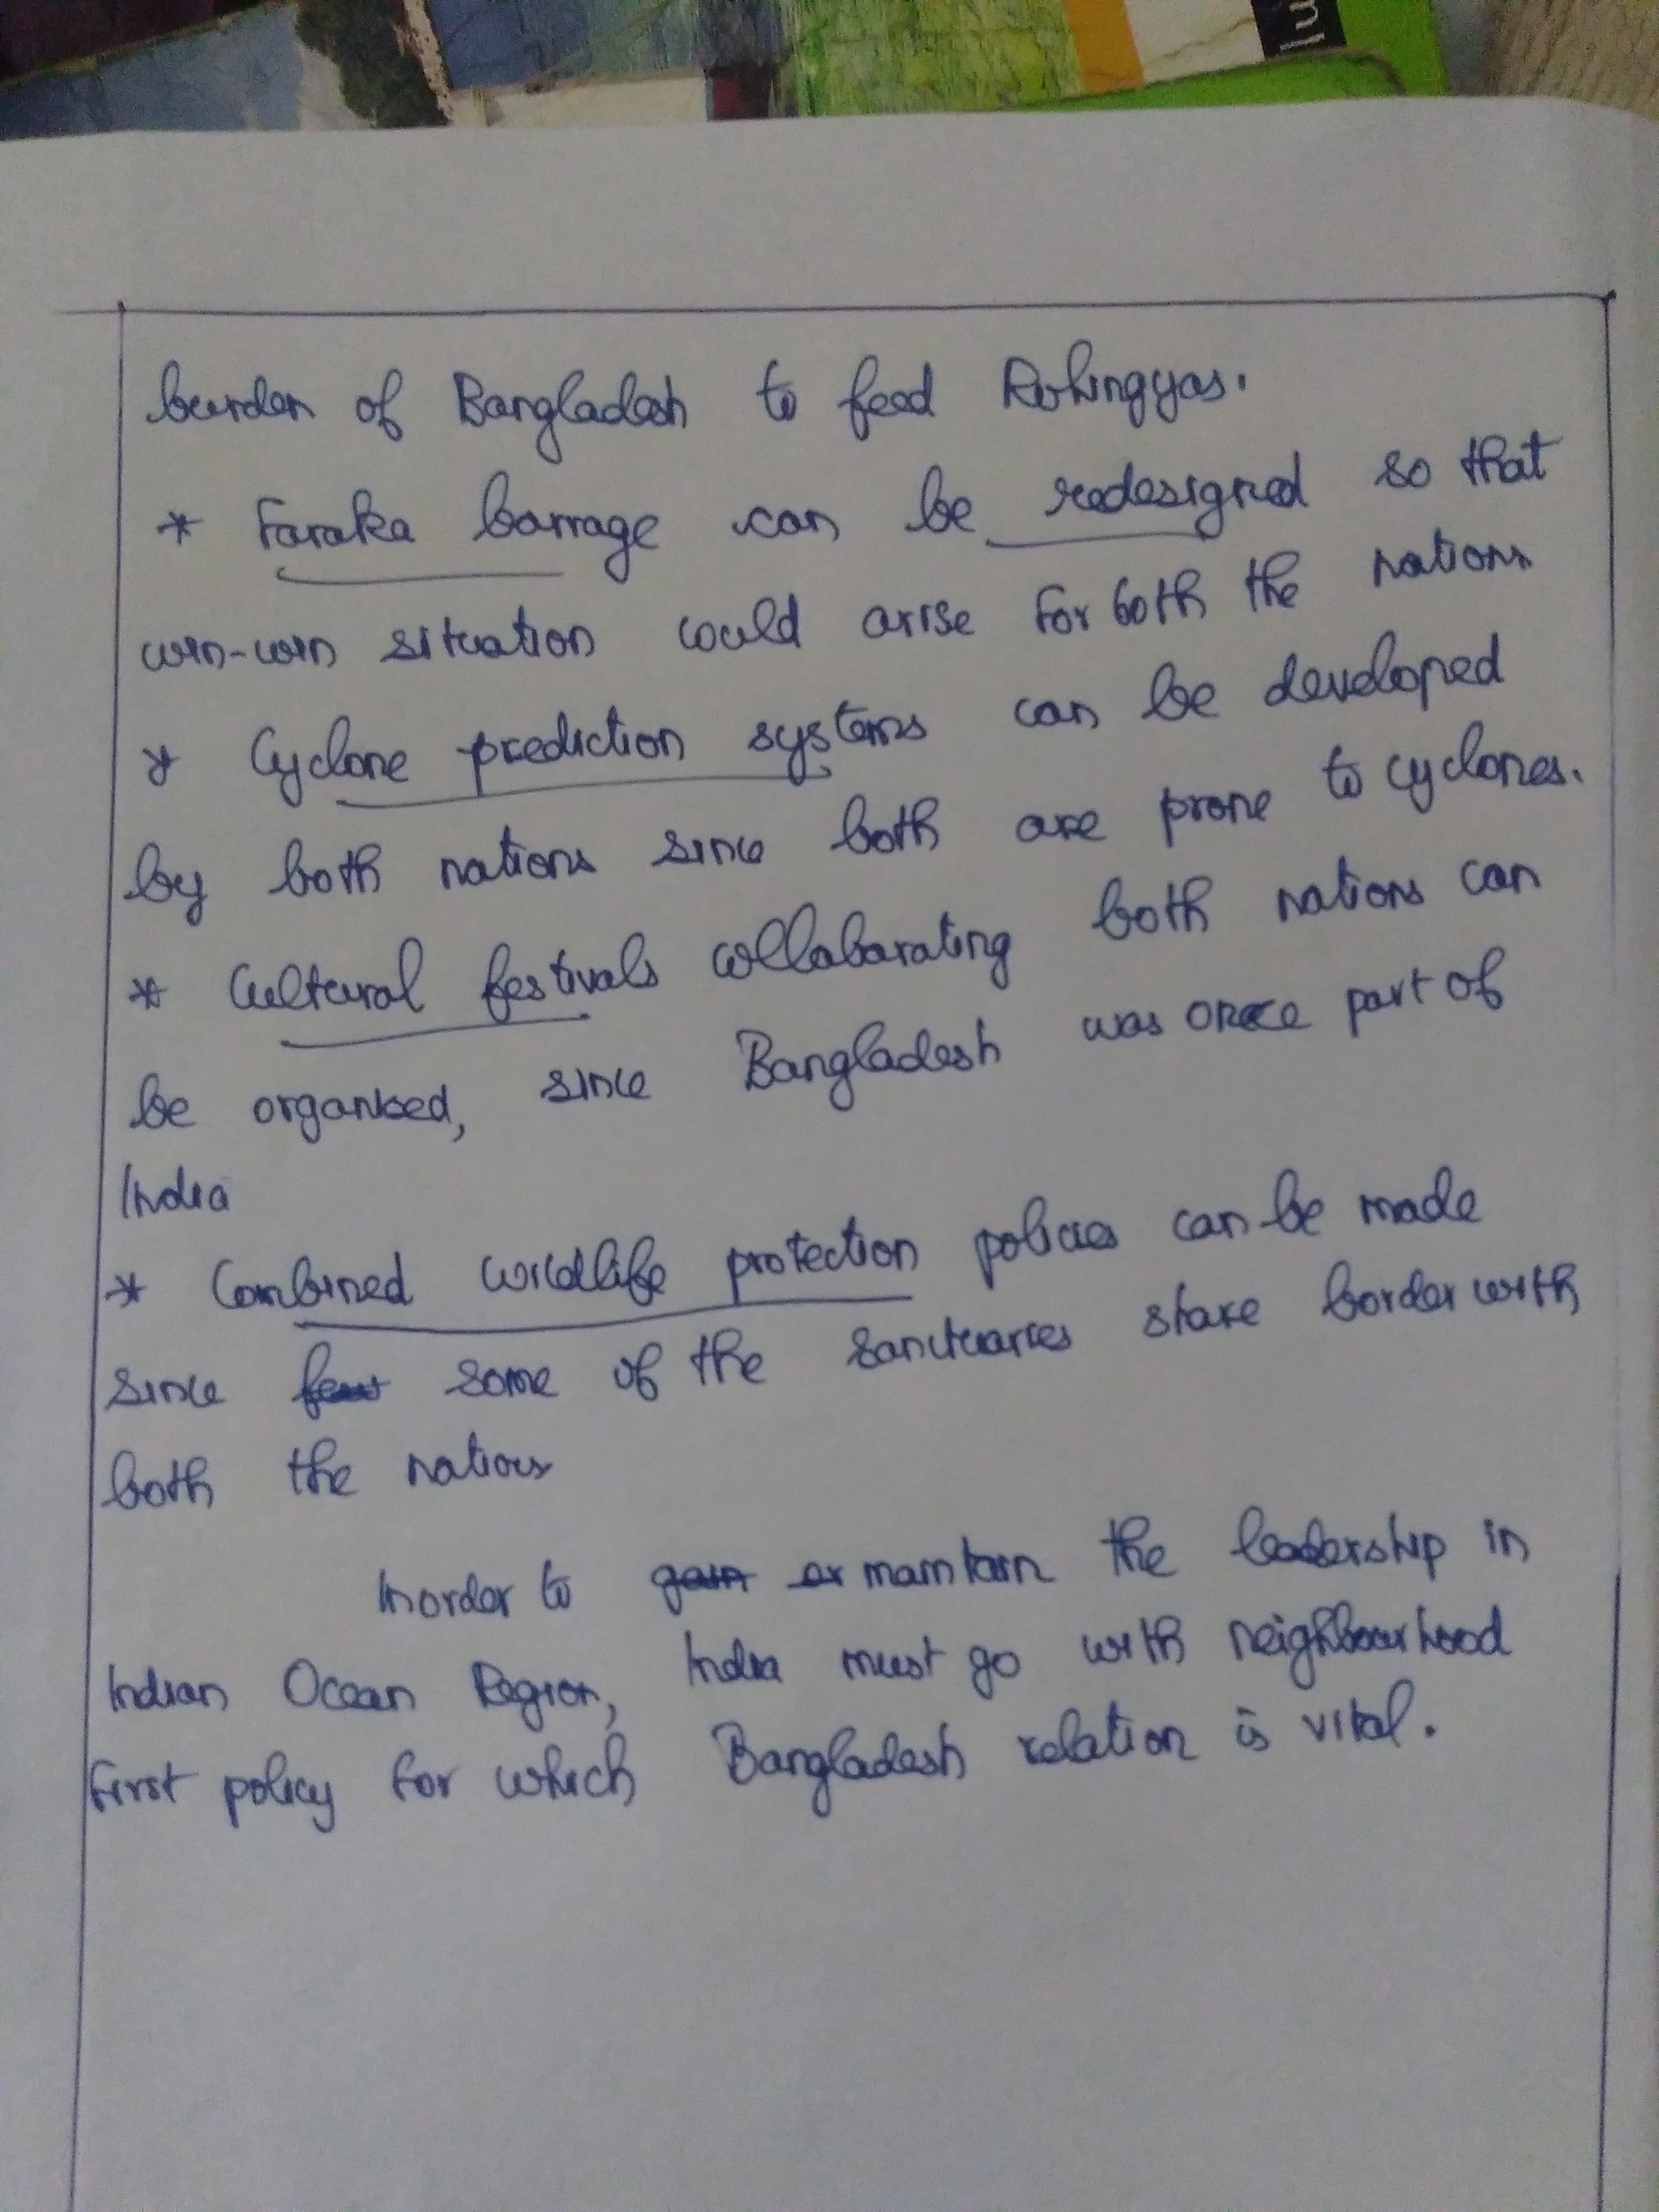 lu
burden of Bangladesh to feed Rohingyas.
* Faraka barrage can be redesigned so that
win-win situation could arise for both the nations
* Cyclone prediction systems can be developed
by both nations since both are prone to cyclones.
* Cultural festivals collabarating both nations can
be organised, since Bangladesh was once part of
India
* Combined wildlife protection policies can be made
since few some of the sanctuaries share border with
both the nations
Inorder to gain or maintain the leadership in
Indian Ocean Region, India must go with neighbourhood
first policy for which Bangladesh relation is vital.